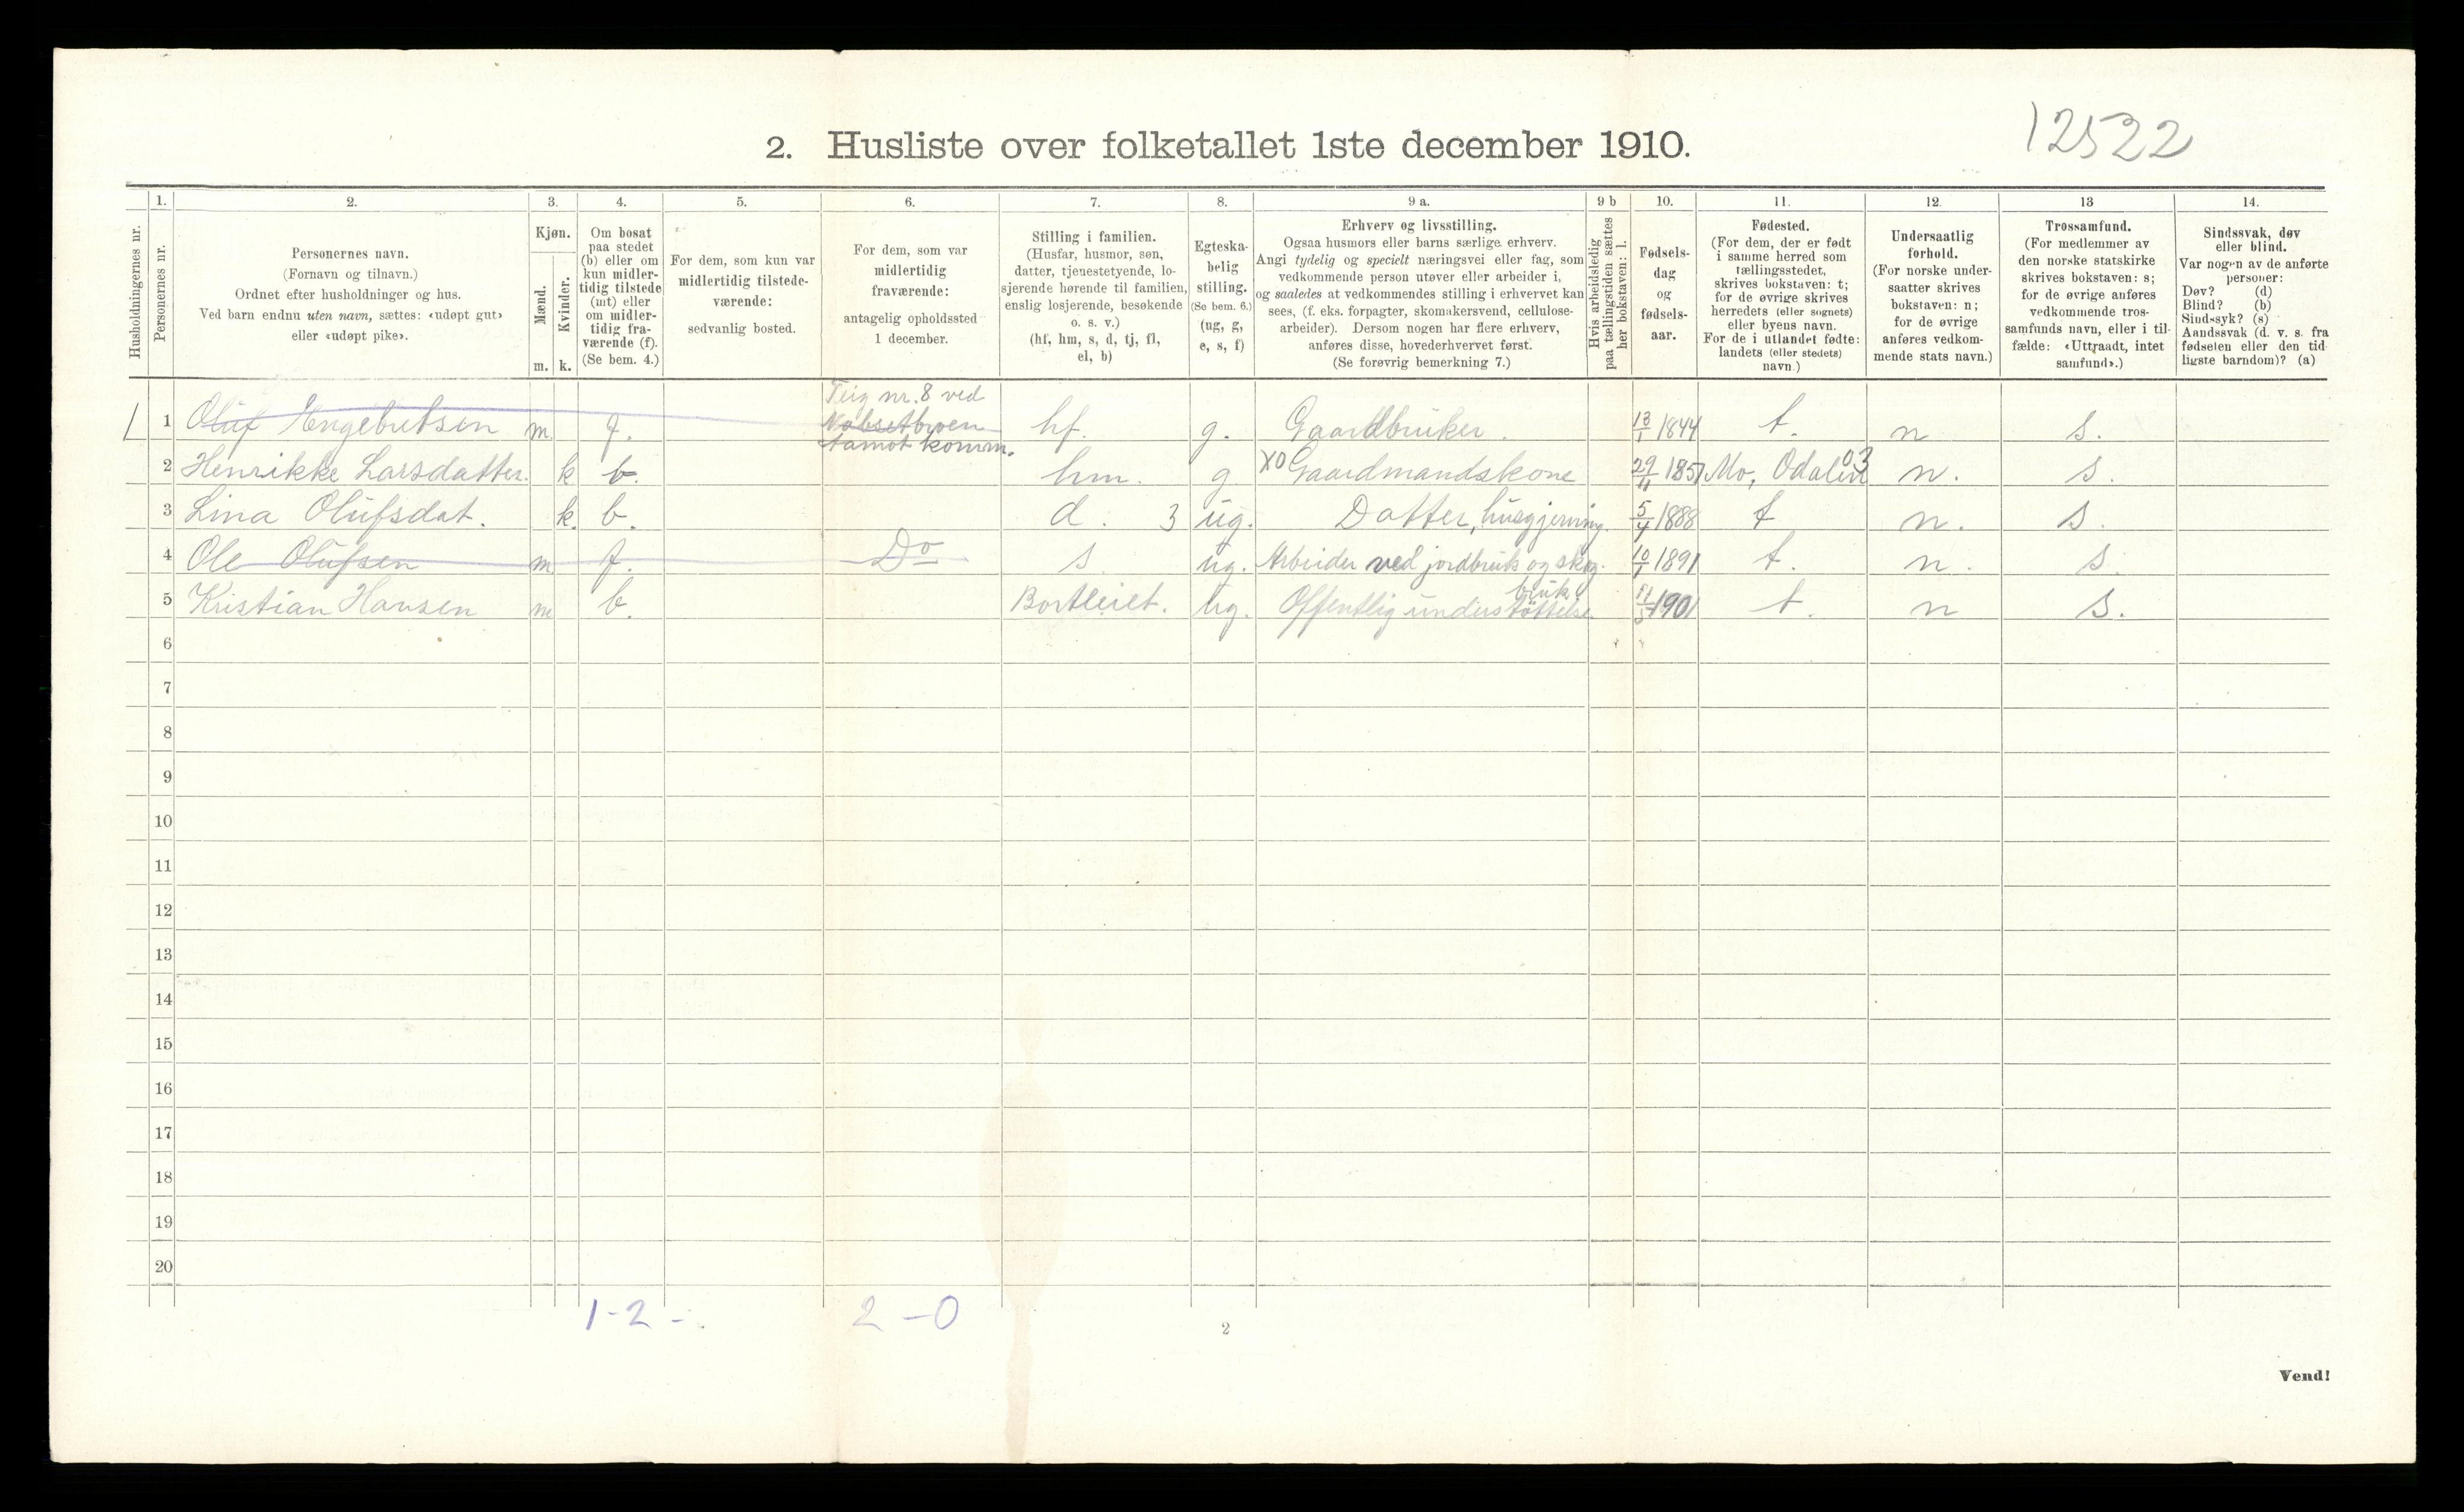 12522
2. Husliste over folketallet 1ste december 1910.
Husholdningernes nr.
1.
Personernes nr.
2.
Personernes navn.
(Fornavn og tilnavn.)
Ordnet efter husholdninger og hus.
Ved barn endnu uten navn, sættes: «udøpt gut»
eller «udøpt pike».
3.
Kjøn.
Mænd.
Kvinder.
m. k.
4.
Om bosat
paa stedet
(b) eller om
kun midler-
tidig tilstede
(mt) eller
om midler-
tidig fra-
værende (f).
(Se bem. 4.)
5.
For dem, som kun var
midlertidig tilstede-
værende:
sedvanlig bosted.
6.
For dem, som var
midlertidig
fraværende:
antagelig opholdssted
1 december.
7.
Stilling i familien.
(Husfar, husmor, søn,
datter, tjenestetyende, lo-
sjerende hørende til familien,
enslig losjerende, besøkende
o. s. v.)
(hf, hm, s, d, tj, fl,
el, b)
8.
Egteska-
belig
stilling.
(Se bem. 6.)
(ug, g,
e, s, f)
9 a.
Erhverv og livsstilling.
Ogsaa husmors eller barns særlige erhverv.
Angi tydelig og specielt næringsvei eller fag, som
vedkommende person utøver eller arbeider i,
og saaledes at vedkommendes stilling i erhvervet kan
sees, (f. eks. forpagter, skomakersvend, cellulose-
arbeider). Dersom nogen har flere erhverv,
anføres disse, hovederhvervet først.
(Se forøvrig bemerkning 7.)
9 b
Hvis arbeidsledig
paa tællingstiden sættes
her bokstaven: l.
10.
Fødsels-
dag
og
fødsels-
aar.
11.
Fødested.
(For dem, der er født
i samme herred som
tællingsstedet,
skrives bokstaven: t;
for de øvrige skrives
herredets (eller sognets)
eller byens navn.
For de i utlandet fødte:
landets (eller stedets)
navn.)
12.
Undersaatlig
forhold.
(For norske under-
saatter skrives
bokstaven: n;
for de øvrige
anføres vedkom-
mende stats navn.)
13
Trossamfund.
(For medlemmer av
den norske statskirke
skrives bokstaven: s;
for de øvrige anføres
vedkommende tros-
samfunds navn, eller i til-
fælde: «Uttraadt, intet
samfund».)
14.
Sindssvak, døv
eller blind.
Var nogen av de anførte
personer:
Døv? (d)
Blind? (b)
Sindssyk? (s)
Aandssvak (d. v. s. fra
fødselen eller den tid-
ligste barndom)? (a)
Teig nr. 8 ved
1 1 Oluf Engebretsen m. f. hf. g. Gaardbruker. 13/1 1844 t. n s.
Aamot komm.
2 Henrikke Larsdatter. k b. hm. g XO Gaardmandskone 29/11 1851 Mo, Odalen 03 n. s.
3 Lina Olufsdat. k. b. d. 3 ug. Datter, husgjerning. 5/4 1888 t n. s.
4 Ole Olufsen m f. Do s ug. Arbeider ved jordbruk og skog. 10/1 1891 t. n. s.
bruk
5 Kristian Hansen m b. Bortleiet. ug. Offentlig understøttelse 11/5 1901 t. n s.
6
7
8
9
10
11
12
13
14
15
16
17
18
19
20
1 - 2 - 2 - 0
2
Vend!